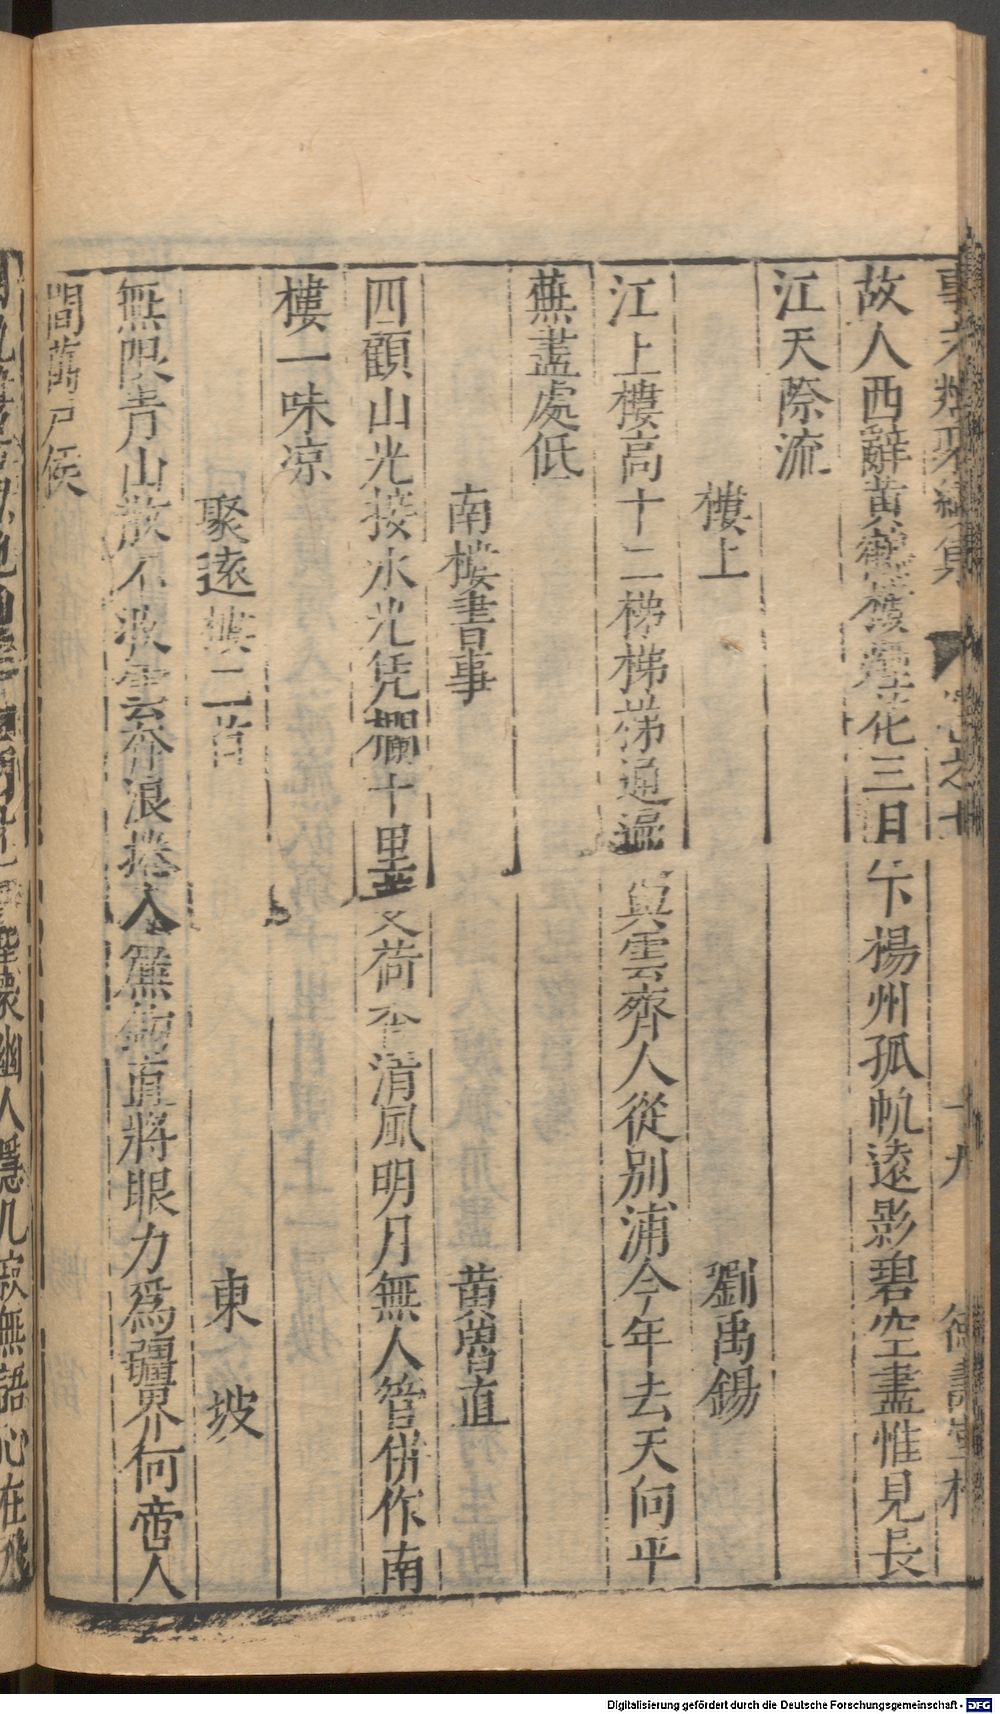 事文類聚續集 卷之七 十九 德壽堂梓
故人西辭黃鶴樓煙花三日下楊州孤帆遠影碧空盡惟見長
江天際流
樓上 劉禹錫
江上樓高十二梯梯梯通遍與雲齊人從別浦今年去天向平
蕪盡處低
南樓書事 黃魯直
四顧山光接水光凭欄十里芰荷香清風明月無人管併作南
樓一味凉
聚遠樓二首 東坡
無限青山散不收雲奔浪捲入簾鉤直將眼力爲疆界何啻人
間萬戶侯
幽人隱几寂無語心在飛
Digitalisierung gefördert durch die Deutsche Forschungsgemeinschaft - DFG